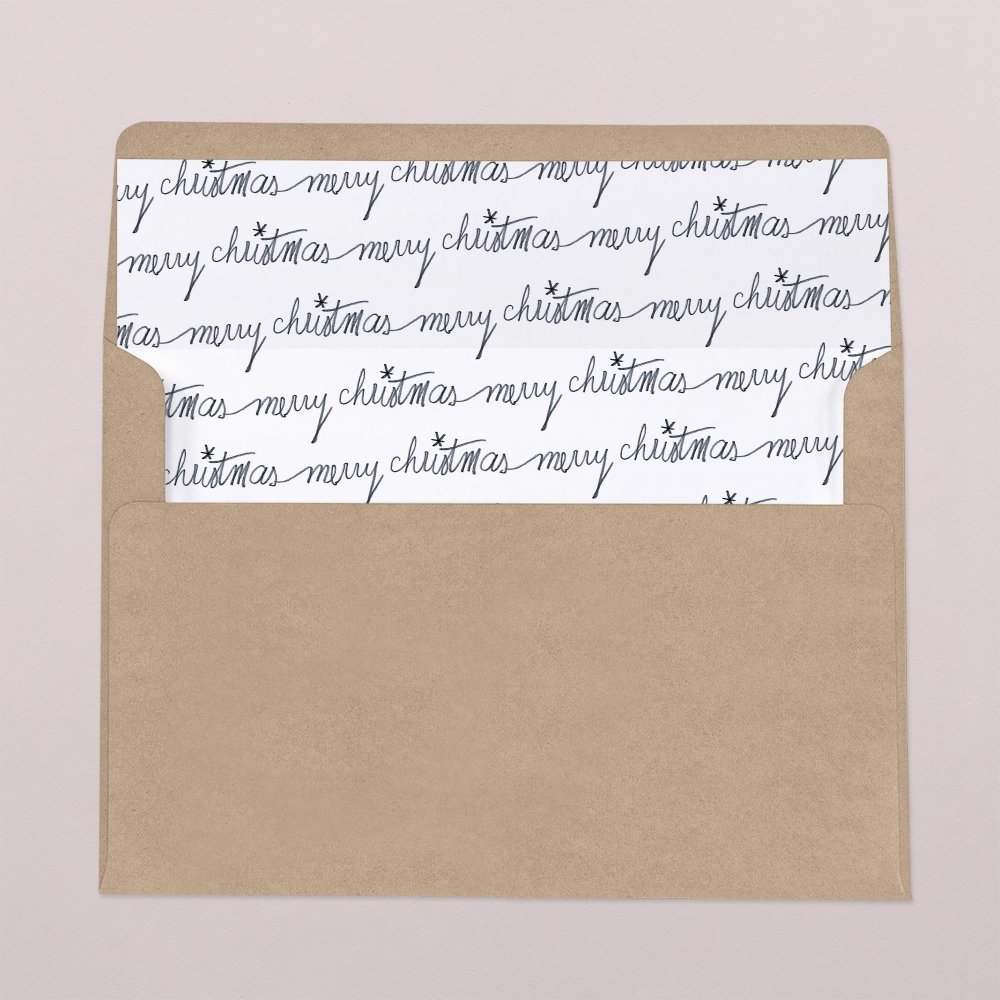 christmas merry christmas merry christmas
merry christmas merry christmas merry christmas merry
christmas merry christmas merry christmas
merry christmas merry christmas merry
christmas merry christmas merry christmas merry